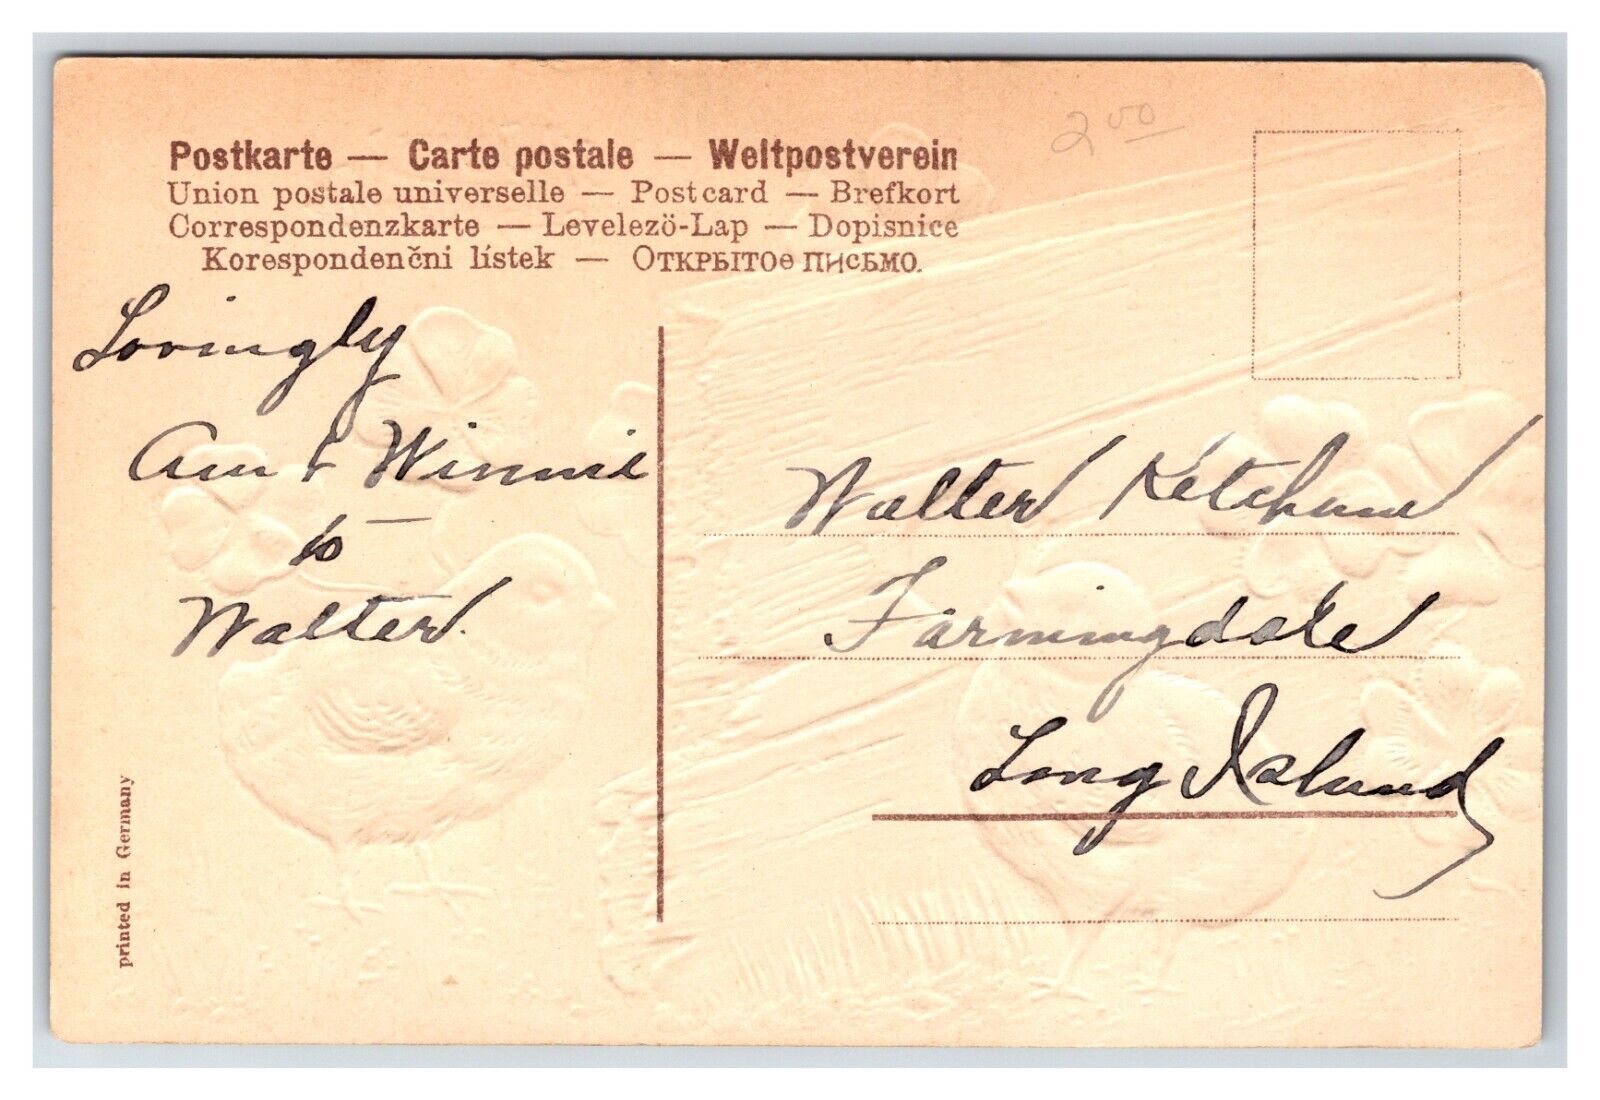 2 00
Postkarte — Carte postale — Weltpostverein
Union postale universelle — Postcard — Brefkort
Correspondenzkarte — Levelezö-Lap — Dopisnice
Korespondenčni lístek — Открытое письмо.
Lovingly
& Winnie
to —
Walter.
Walter Ketcham
Farmingdale
Long Island
printed in Germany